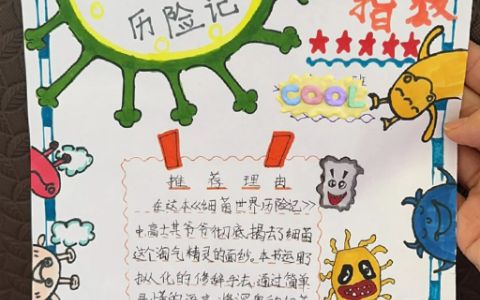 历险记
指数
班
COOL
推荐理由
在这本《细菌世界历险记》
中高士其爷爷彻底揭去了细菌
这个淘气精灵的面纱。本书运用
拟人化的修辞手法,通过简单